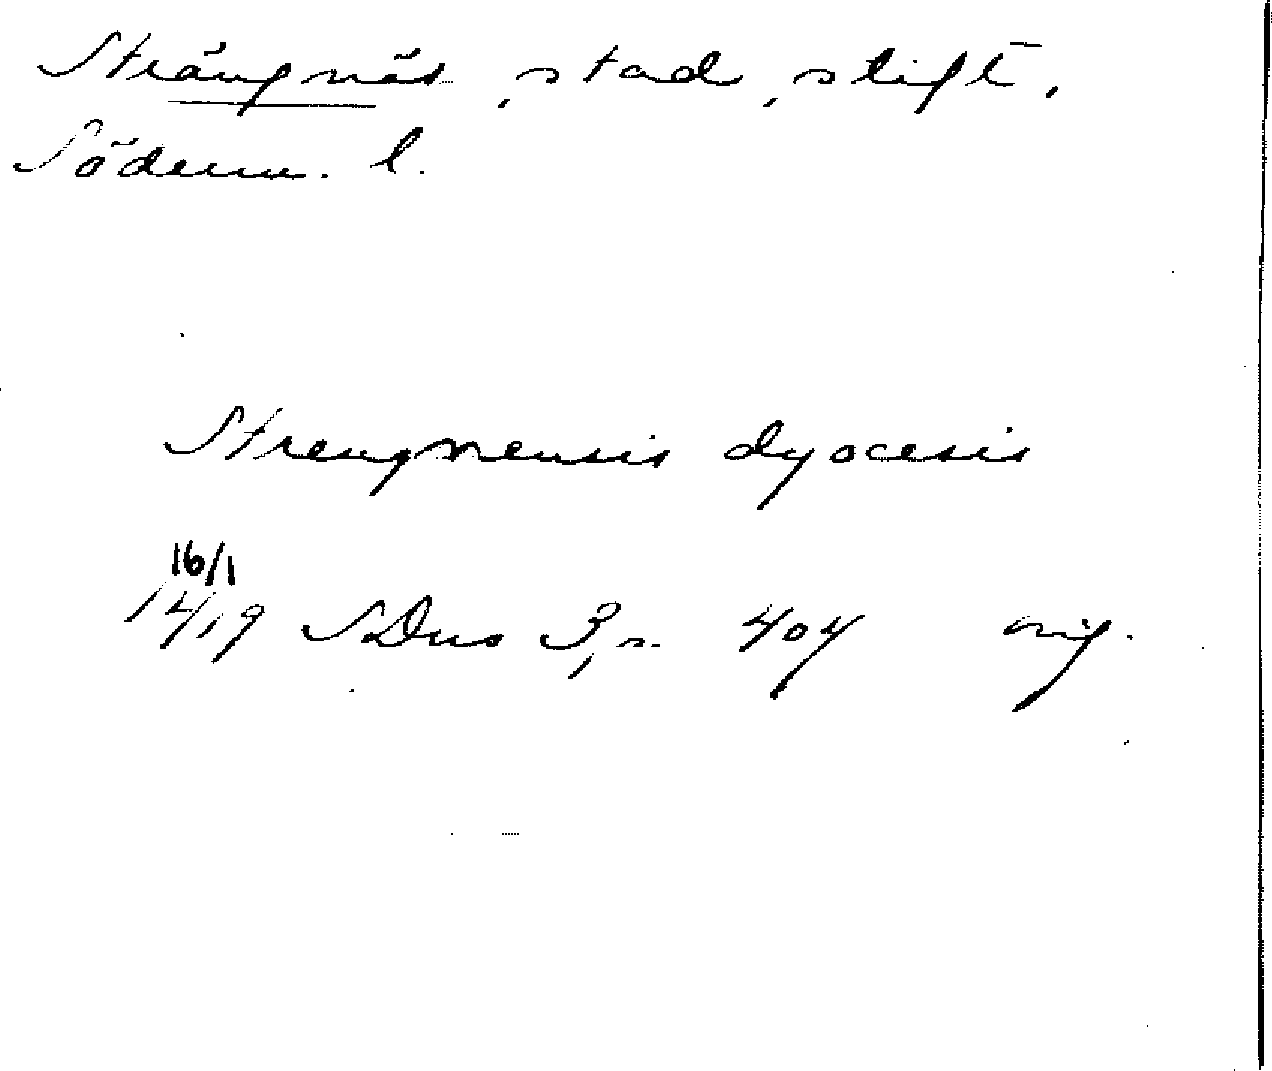 Strängnäs, stad, stift,
Söderm. l.
Strengnensis dyocesis
16/1
1419 SDns 3, s. 404 orig.